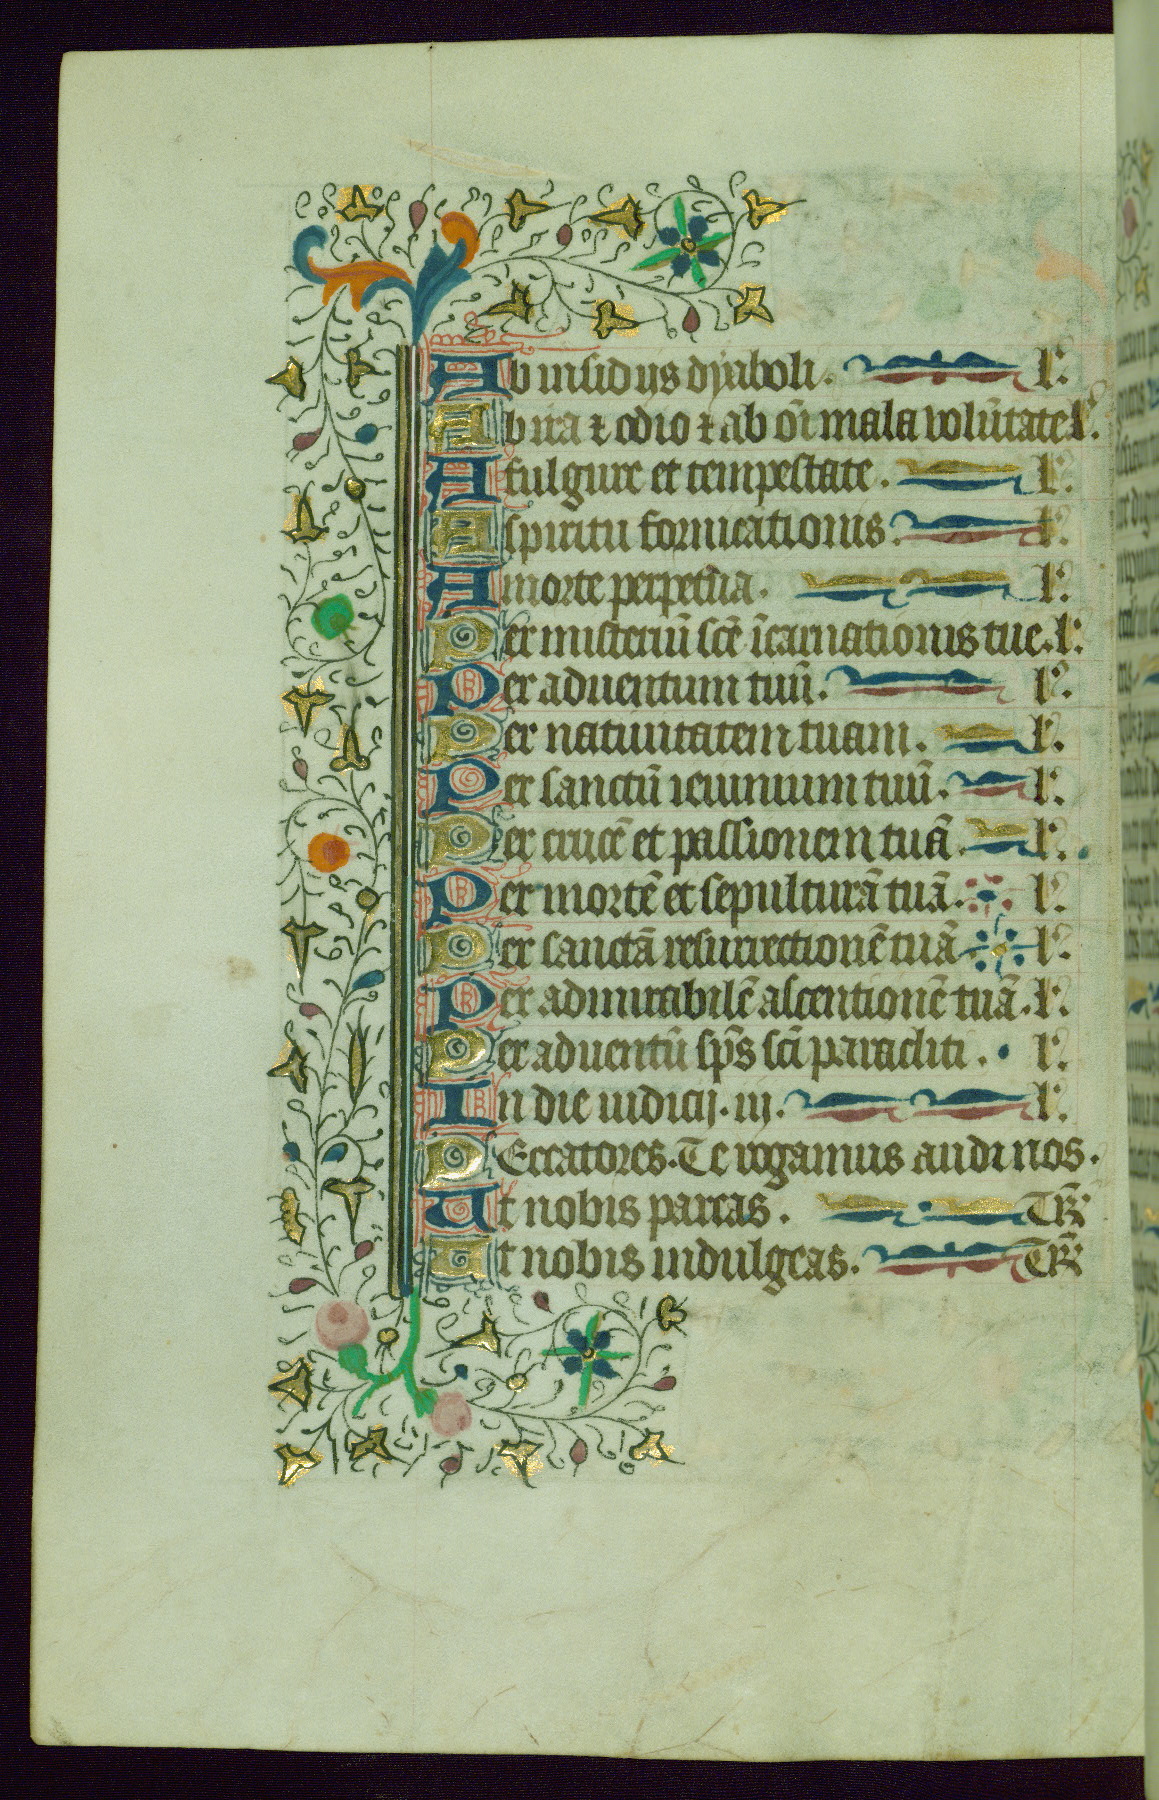 Ab insidijs dyaboli. l'.
Ab ira ⁊ odio ⁊ ab om̄i mala volūtate l'.
A fulgure et tempestate. l'.
A spiritu fornicationis. l'.
A morte perpetua. l'.
Per misteriū sc̄e īcarnationis tue. l'.
Per aduentum tuū. l'.
Per natiuitatem tuam. l'.
Per sanctū ieiunium tuū. l'.
Per crucē et passionem tuā. l'.
Per mortē et sepulturā tuā. l'.
Per sanctā resurrectionē tuā l'.
Per admirabilē ascentionē tuā. l'.
Per aduentū sp̄s sc̄i paracliti. l'.
In die iudicij. iij. l'.
PEccatores. Te rogamus audi nos.
Ut nobis parcas. TR̄
Ut nobis indulgeas. TR̄